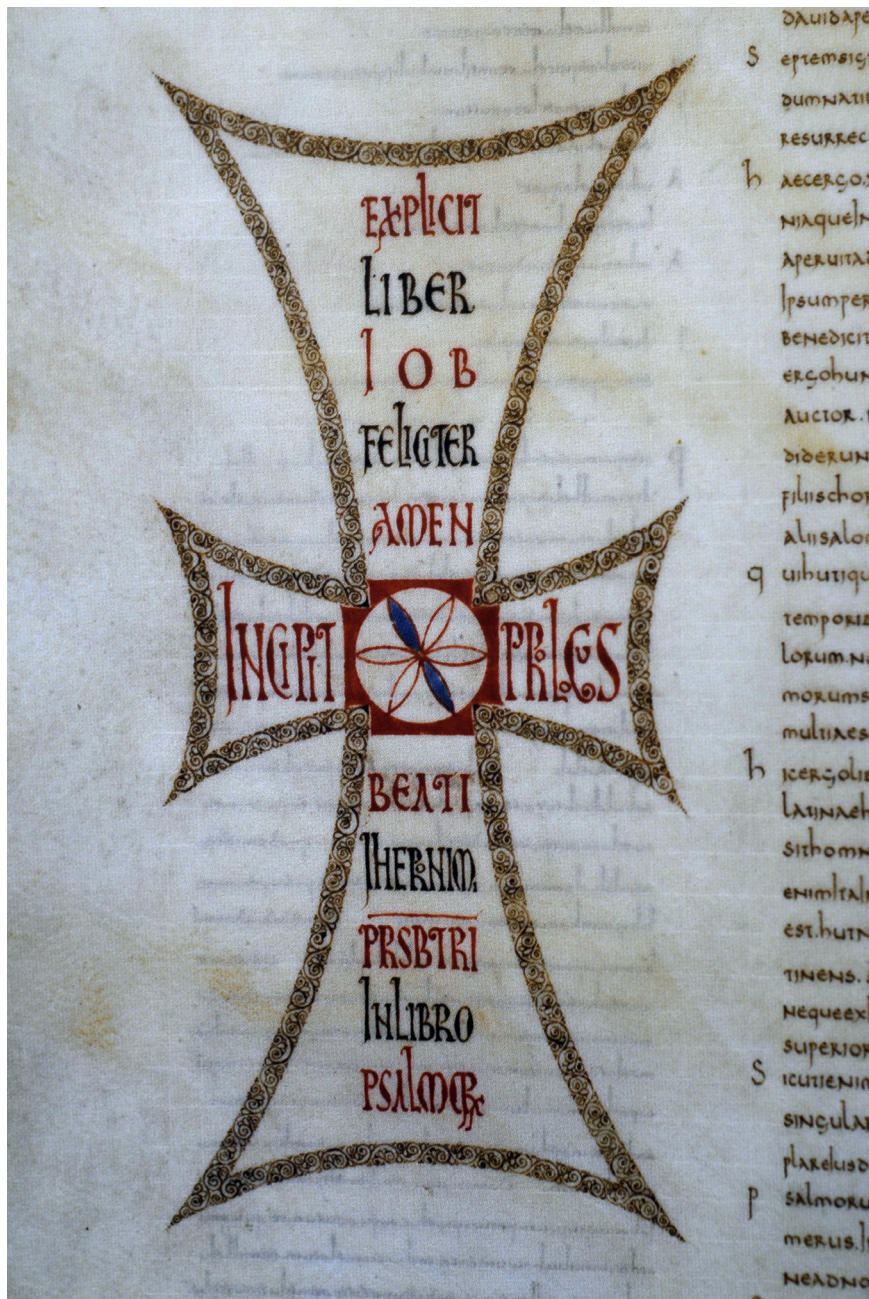 EXPLICIT
LIBER
IOB
FELICITER
AMEN
INCIPIT PROLOGUS
BEATI
IHERONIMI
PRSBTRI
IN LIBRO
PSALMORUM
DAUIDAPE
S EPTEMSIG
DUMNATIU
RESURREC
h AECERGO.
NIAQUEIN
APERUITAD
IPSUMPER
BENEDICIT
ERGOHUN
AUCTOR.
DIDERUN
FILIISCHOR
ALIISALOM
q UIHUTIQU
TEMPORIB
LORUM.NA
MORUMS
MULTIAES
h ICERGOLIB
LATINAEH
SITHOMN
ENIMITALI
EST.HUTN
TINENS.
NEQUEEX
SUPERIOR
S ICUTIENIM
SINGULAR
PLARELUSD
P SALMORU
MERUS.
NEADNO